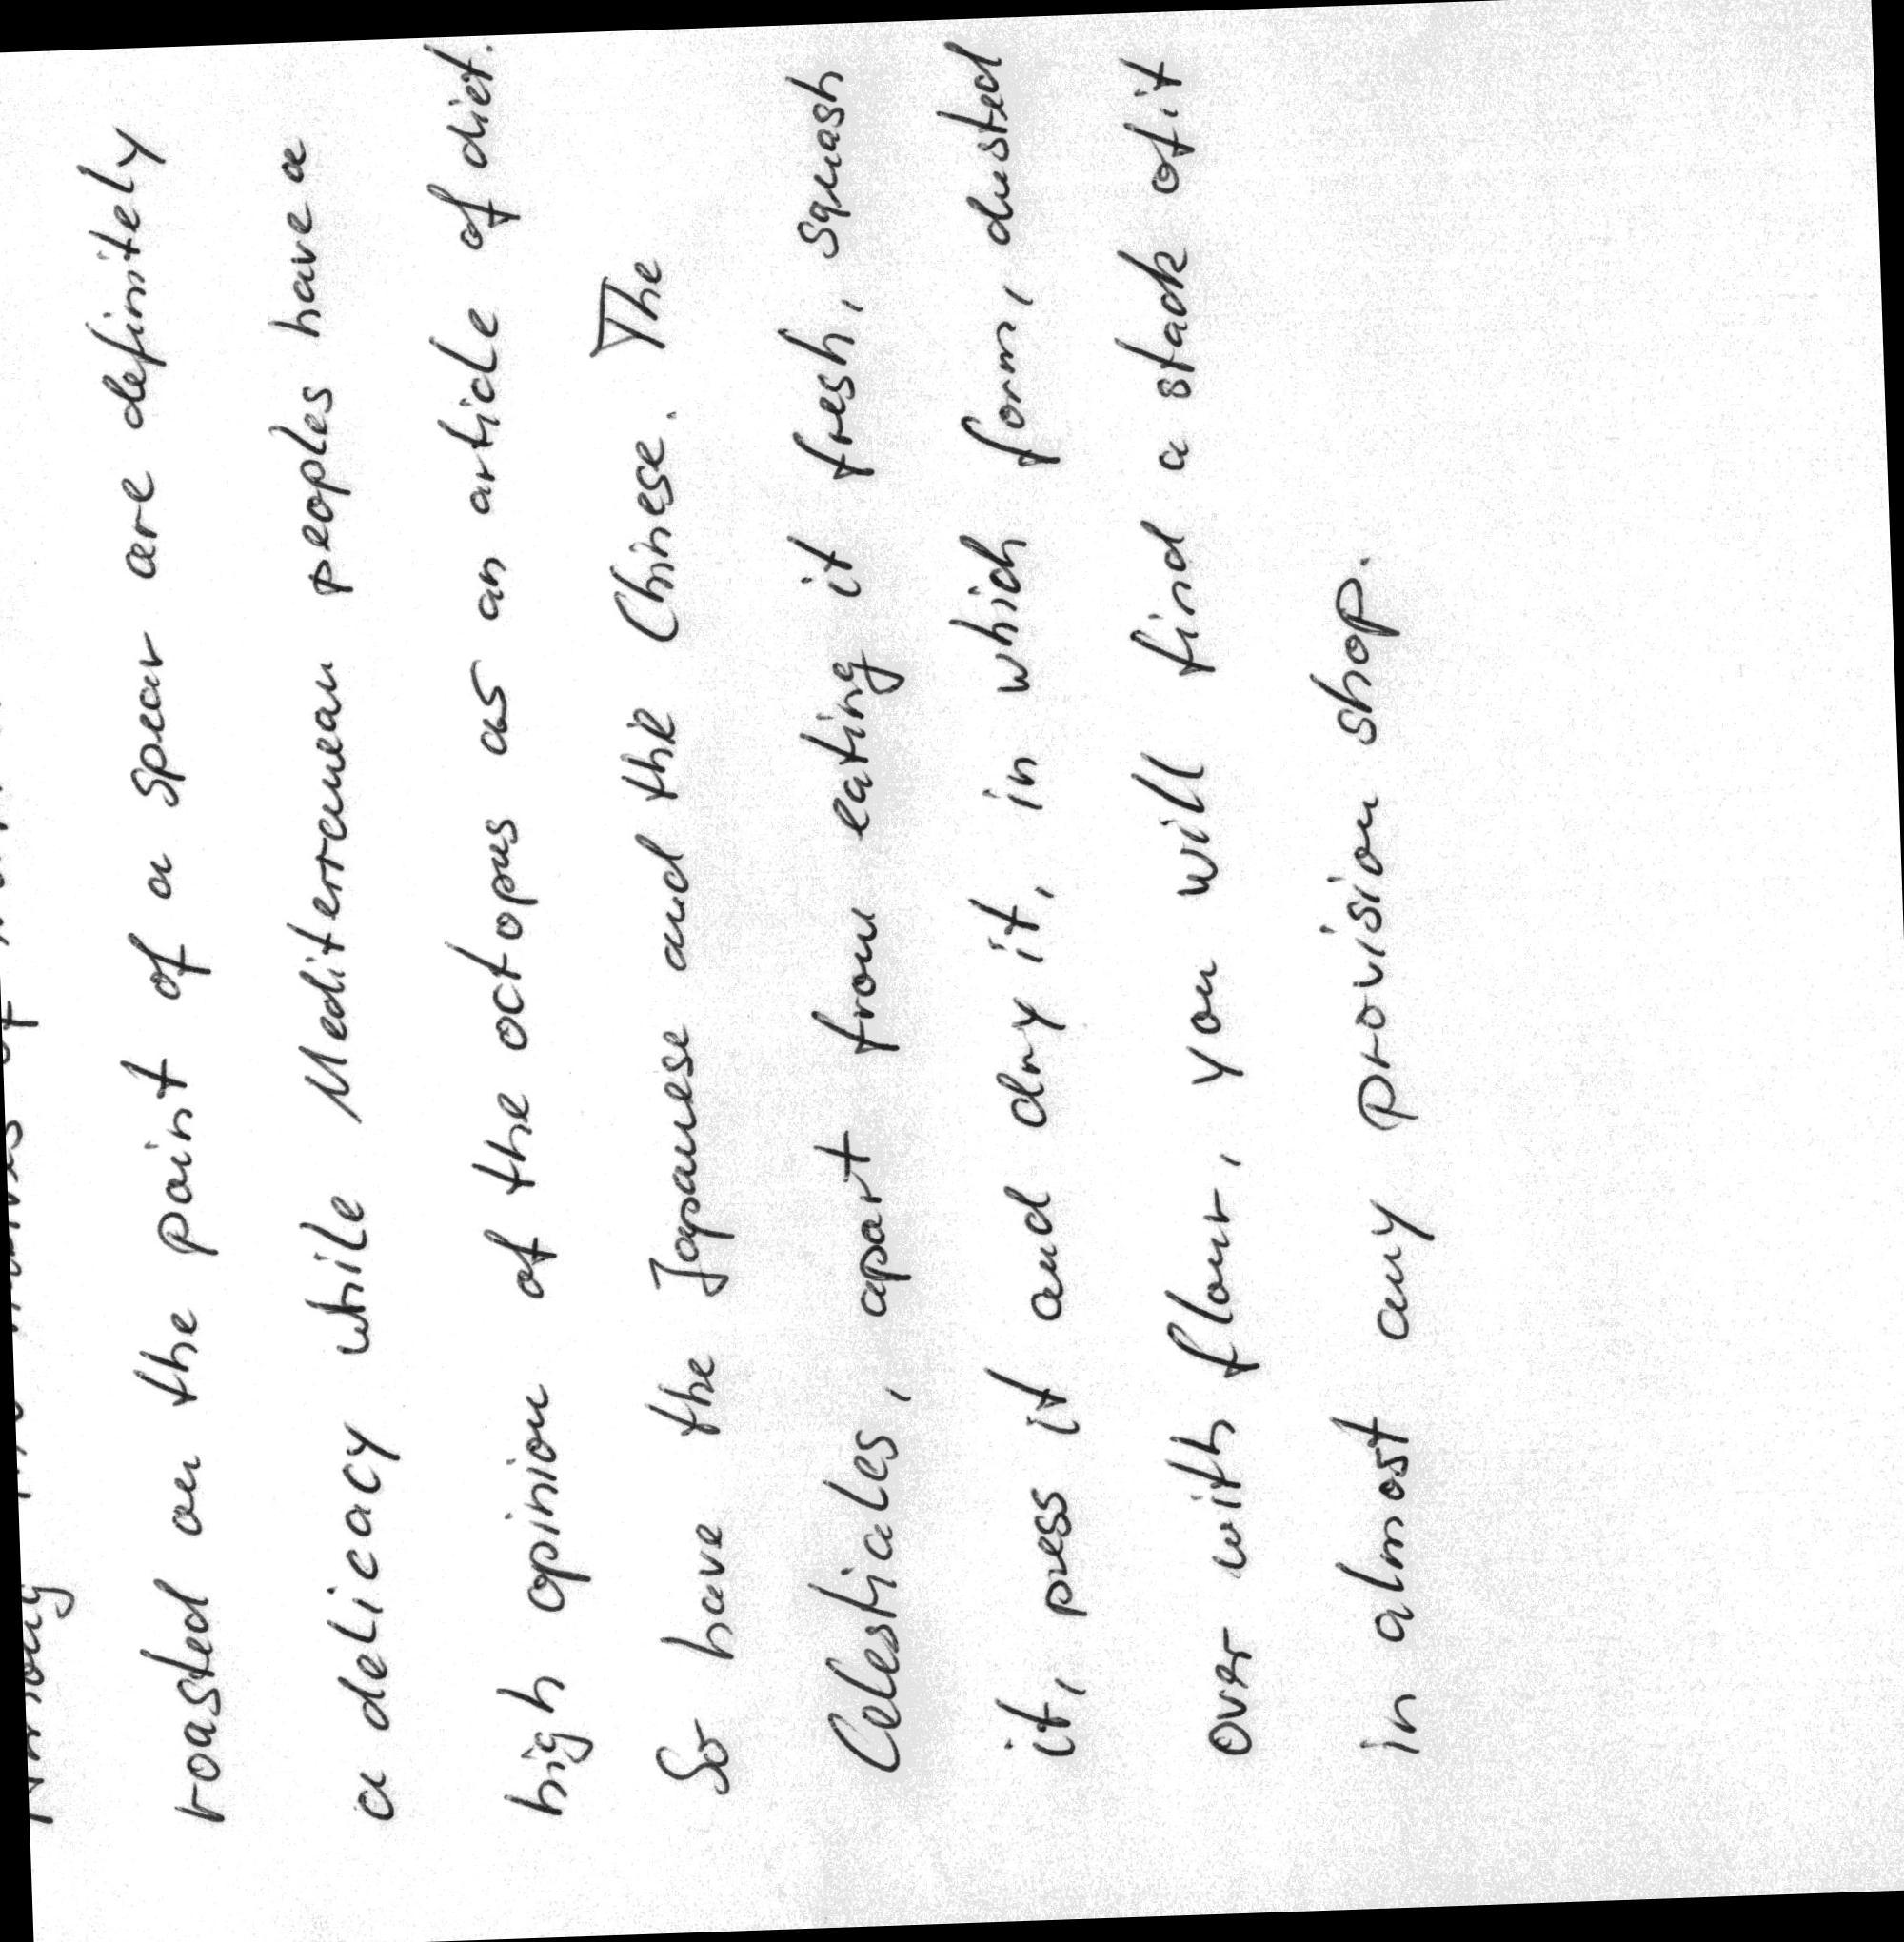 Among
roasted on the point of a spear are definitely
a delicacy while Mediterranean peoples have a
high opinion of the octopus as an article of diet.
So have the Japanese and the Chinese. The
Celestiales, apart from eating it fresh, squash
it, press it and dry it, in which form, dusted
over with flour, you will find a stack of it
in almost any provision shop.